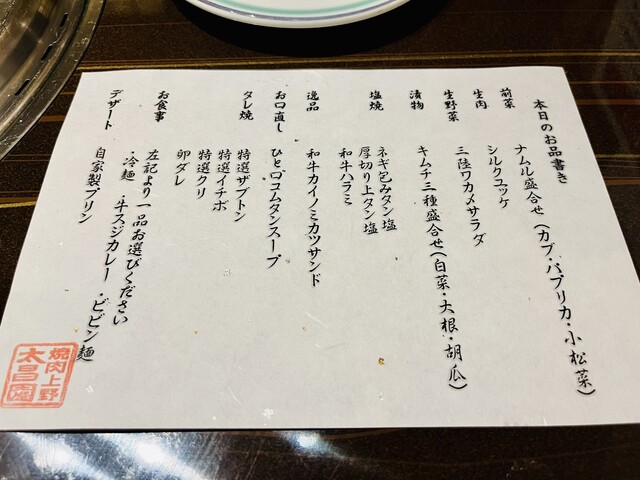 本日のお品書き
前菜 ナムル盛合せ(カブ・パプリカ・小松菜)
生肉 シルクユッケ
生野菜 三陸ワカメサラダ
漬物 キムチ三種盛合せ(白菜・大根・胡瓜)
塩焼 ネギ包みタン塩
厚切り上タン塩
和牛ハラミ
逸品 和牛カイノミカツサンド
お口直し ひと口コムタンスープ
タレ焼 特選ザブトン
特選イチボ
特選クリ
卵ダレ
お食事 左記より一品お選びください
・冷麺 ・牛スジカレー ・ビビン麺
デザート 自家製プリン
焼肉上野
太昌園